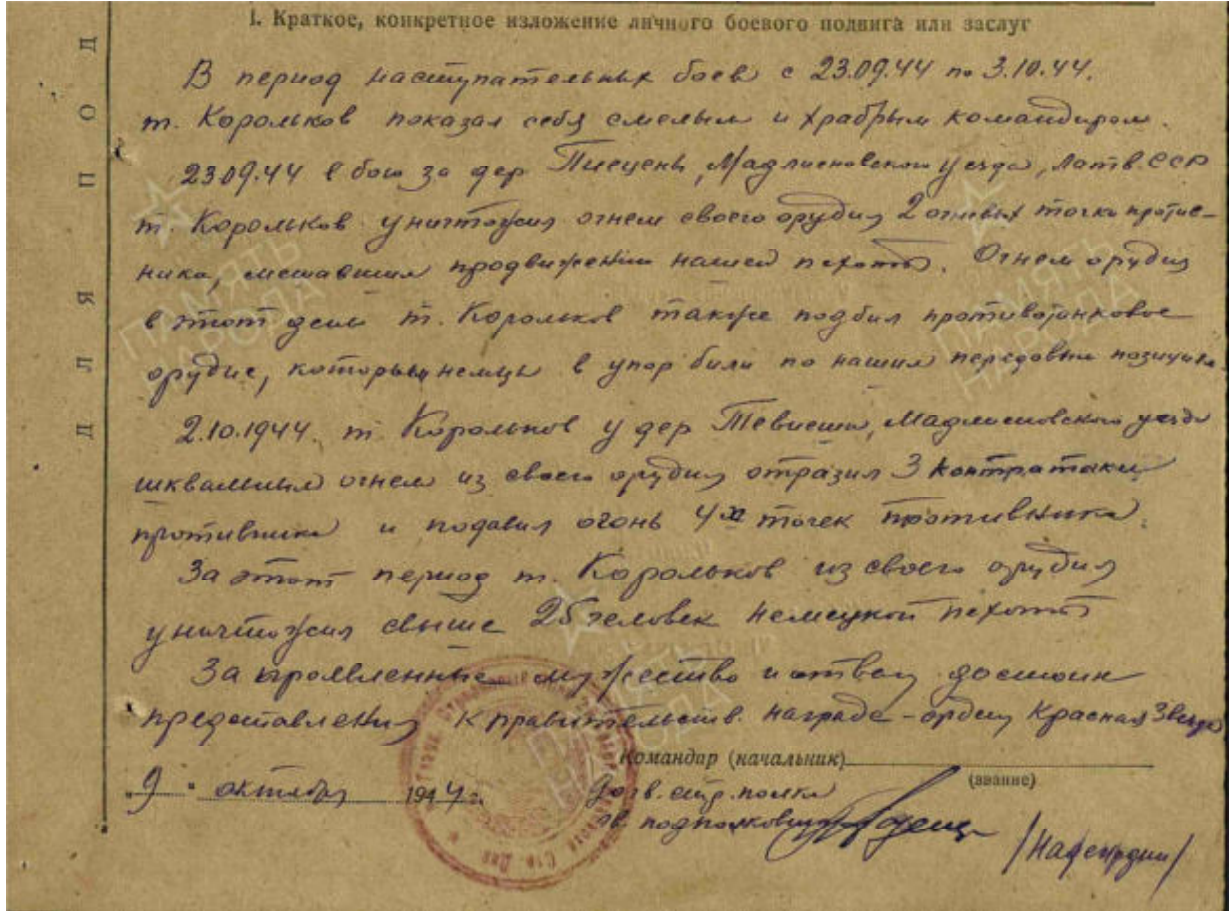 I. Краткое, конкретное изложение личного боевого подвига или заслуг
ДЛЯ ПОД
В период наступательных боев с 23.09.44 по 3.10.44.
т. Корольков показал себя смелым и храбрым командиром.
23.09.44 в бою за дер. Мадлиеновского уезда, Латв. ССР
т. Корольков уничтожил огнем своего орудия 2 огневых точки против-
ника, мешавшим продвижению нашей пехоты. Огнем орудия
в этот день т. Корольков также подбил противотанковое
орудие, которым немцы в упор били по нашим передовым позициям.
2.10.1944. т. Корольков у дер. Мадлиеновского уезда
шквальным огнем из своего орудия отразил 3 контратаки
противника и подавил огонь 4х точек противника.
За этот период т. Корольков из своего орудия
уничтожил свыше 25 человек немецкой пехоты
За проявленные мужество и отвагу достоин
представления к правительств. награде - ордену Красная Звезда
Командир (начальник)
(звание)
"9" октября 1944 г.
стр. полка
гв. подполковник
ПАМЯТЬ
НАРОДА
ПАМЯТЬ
НАРОДА